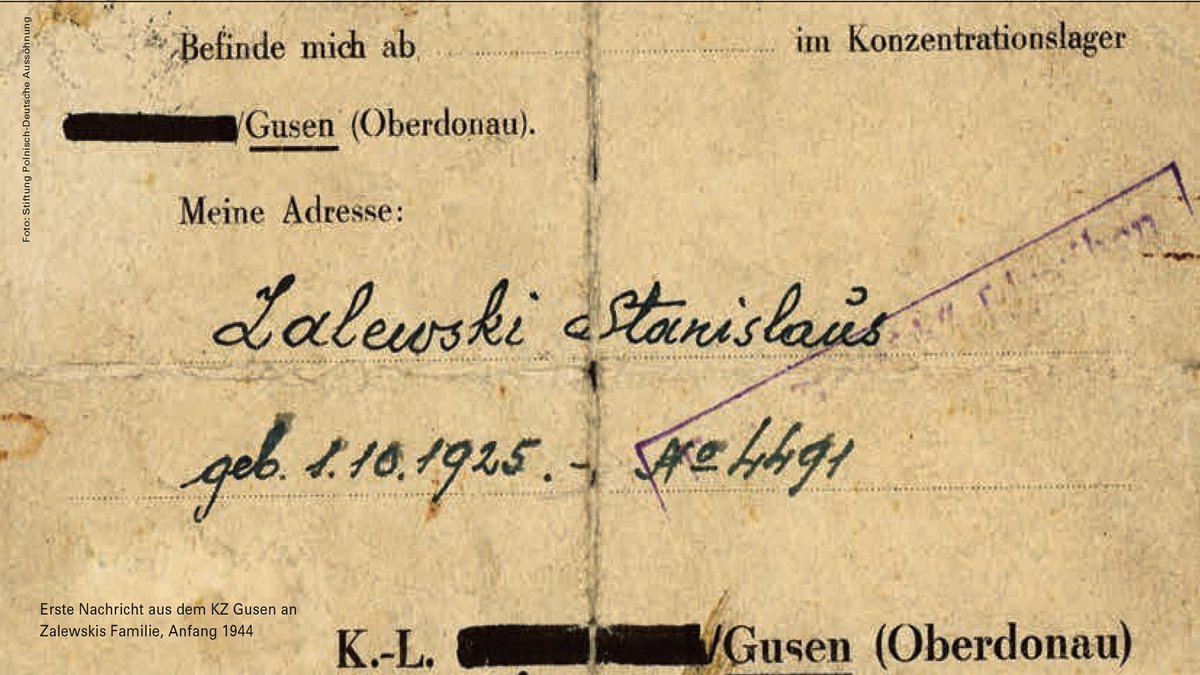 Foto: Stiftung Polnisch-Deutsche Aussöhnung
Befinde mich ab im Konzentrationslager
/Gusen (Oberdonau).
Meine Adresse:
Zalewski Stanislaus
geb. 1.10.1925. - No 4491
Erste Nachricht aus dem KZ Gusen an
Zalewskis Familie, Anfang 1944
K.-L. /Gusen (Oberdonau)